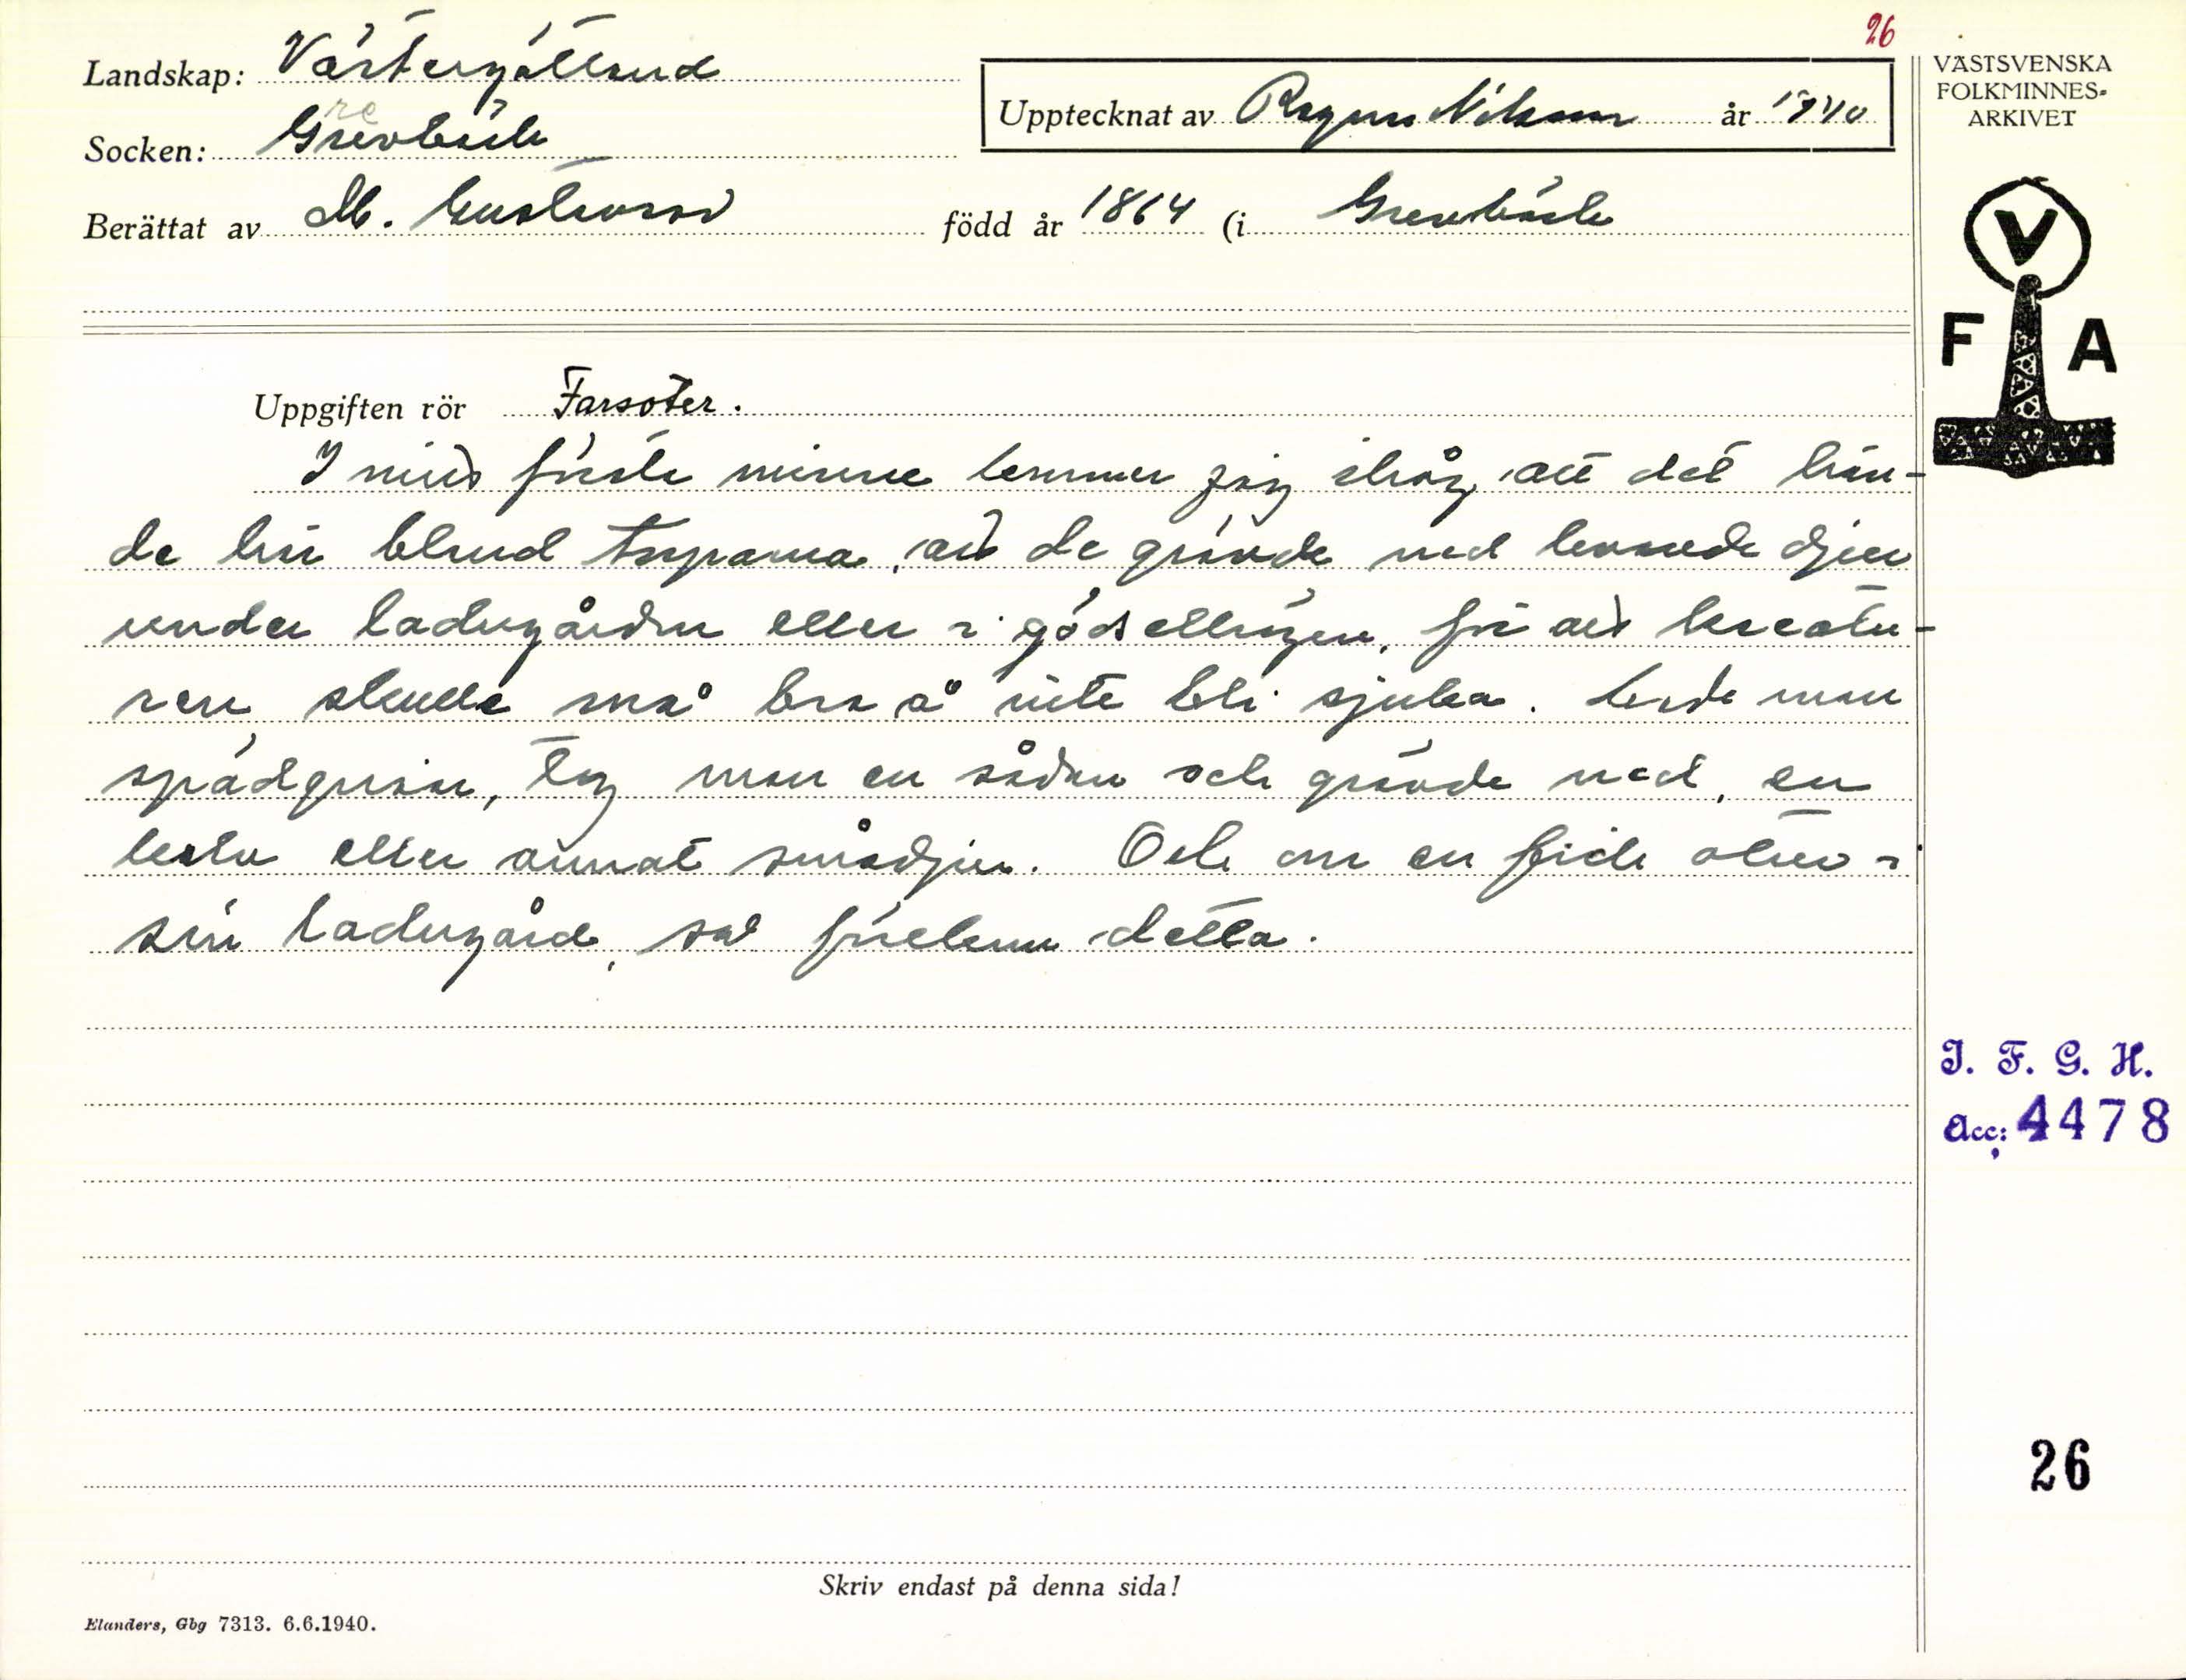 26
Landskap: Västergötland
Upptecknat av Ragnar Nilsson år 1940
VÄSTSVENSKA
FOLKMINNES-
ARKIVET
re
Socken: Grevbäck
Berättat av M. Gustavsson född år 1864 (i Grevbäck
V
F A
Uppgiften rör Farsoter.
I mitt första minne kommer jag ihåg att det hän-
de här bland torparna, att de grävde ned levande djur
under ladugården eller i gödselhögen, för att kreatu-
ren skulle må bra å inte bli sjuka. Hade man
spädgrisar, tog man en sådan och grävde ned, en
katt eller annat smådjur. Och om en hade otur i
sin ladugård, så förekom detta.
I. F. G. H.
Acc: 4478
26
Skriv endast på denna sida!
Elanders, Gbg 7313. 6.6.1940.